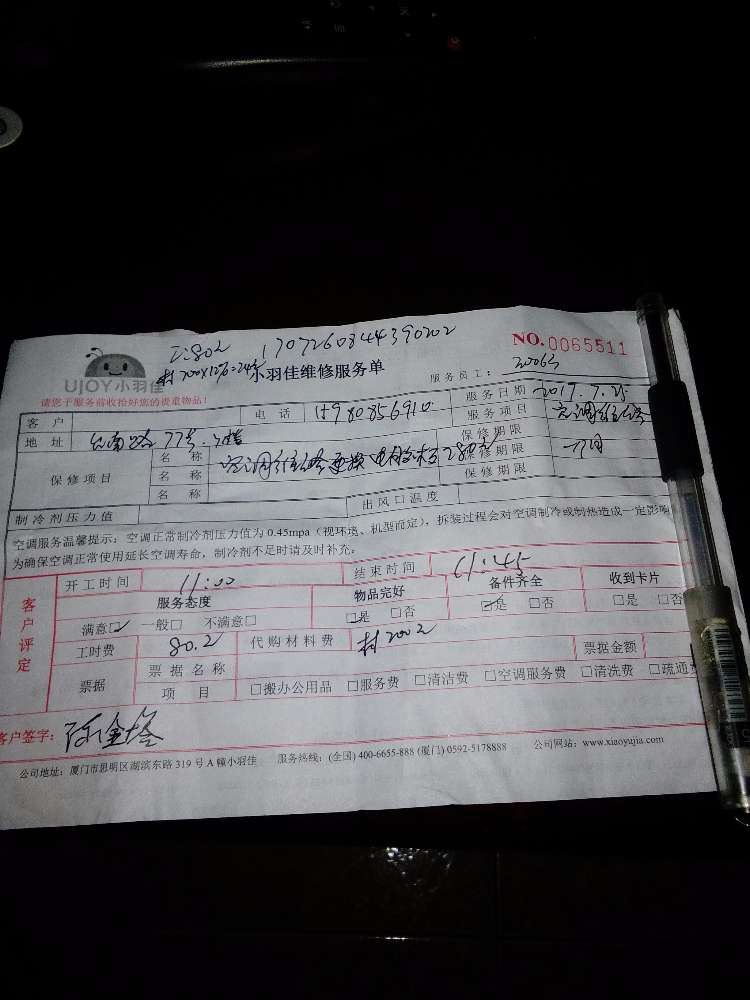 工:80元 17072608444390202
材200×12%=24元
NO.0065511
UJOY小羽佳
小羽佳维修服务单
服务员工:
请您于服务前收拾好您的贵重物品!
客户 电话 服务日期 2017.7.25
地址 台南路77号 服务项目 空调维修
保修项目 名称 空调维修更换电脑板280元 保修期限
名称 保修期限
名称 保修期限
制冷剂压力值 出风口温度
空调服务温馨提示:空调正常制冷剂压力值为0.45mpa(视环境、机型而定),拆装过程会对空调制冷或制热造成一定影响
为确保空调正常使用延长空调寿命,制冷剂不足时请及时补充。
客户评定
开工时间 11:00 结束时间 11:45
服务态度 物品完好 备件齐全 收到卡片
满意□ 一般□ 不满意□ □是 □否 □是 □否 □是 □否
工时费 80元 代购材料费 材200元 票据金额
票据 票据名称
项目 □搬办公用品 □服务费 □清洁费 □空调服务费 □清洗费 □疏通费
客户签字:
公司地址:厦门市思明区湖滨东路319号A幢小羽佳 服务热线:(全国) 400-6655-888 (厦门) 0592-5178888 公司网站:www.xiaoyujia.com